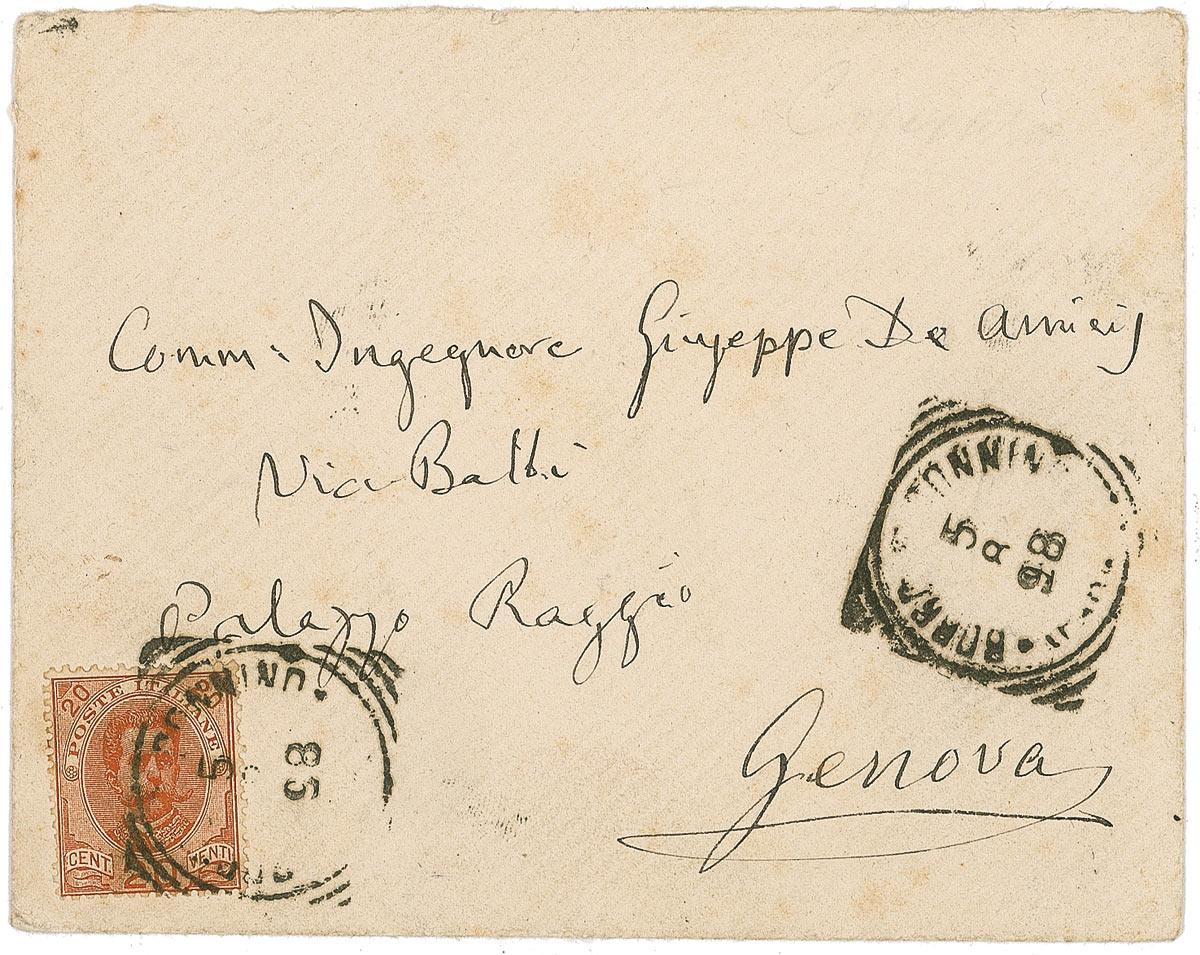 Comm: Ingegnere Giuseppe De Amicis
Via Balbi
Palazzo Raggio
Genova
20 20
POSTE ITALIANE
CENT VENTI
5
98
5
98